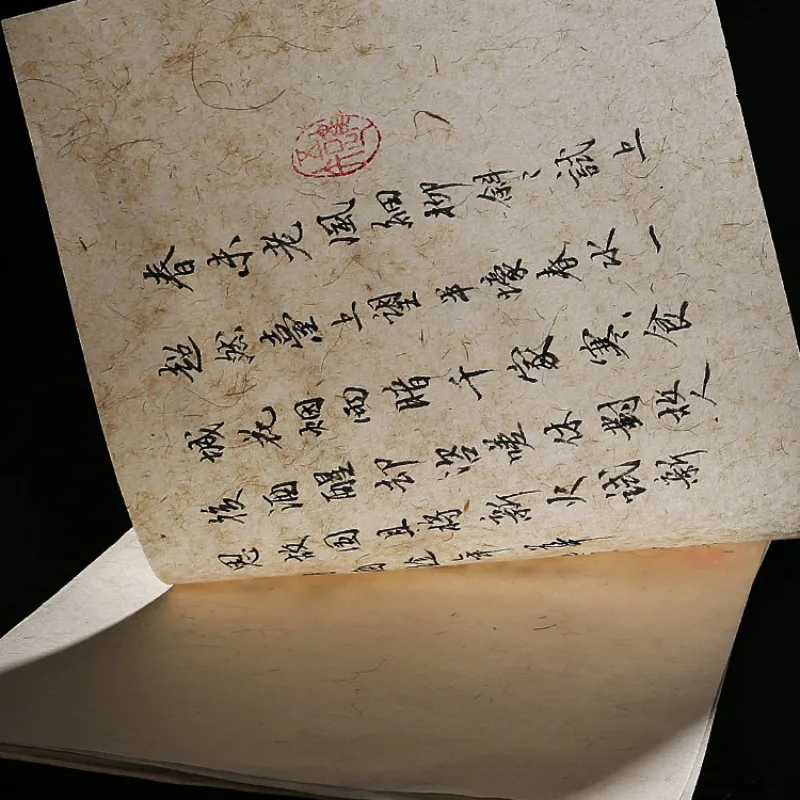 春未老風細柳斜〻試上
超然臺上望半壕春水一
城花烟雨暗千家寒食
後酒醒却咨嗟休對故人
思故国且將新火試新